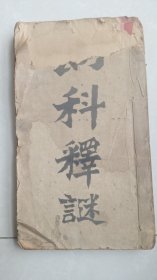 科釋謎